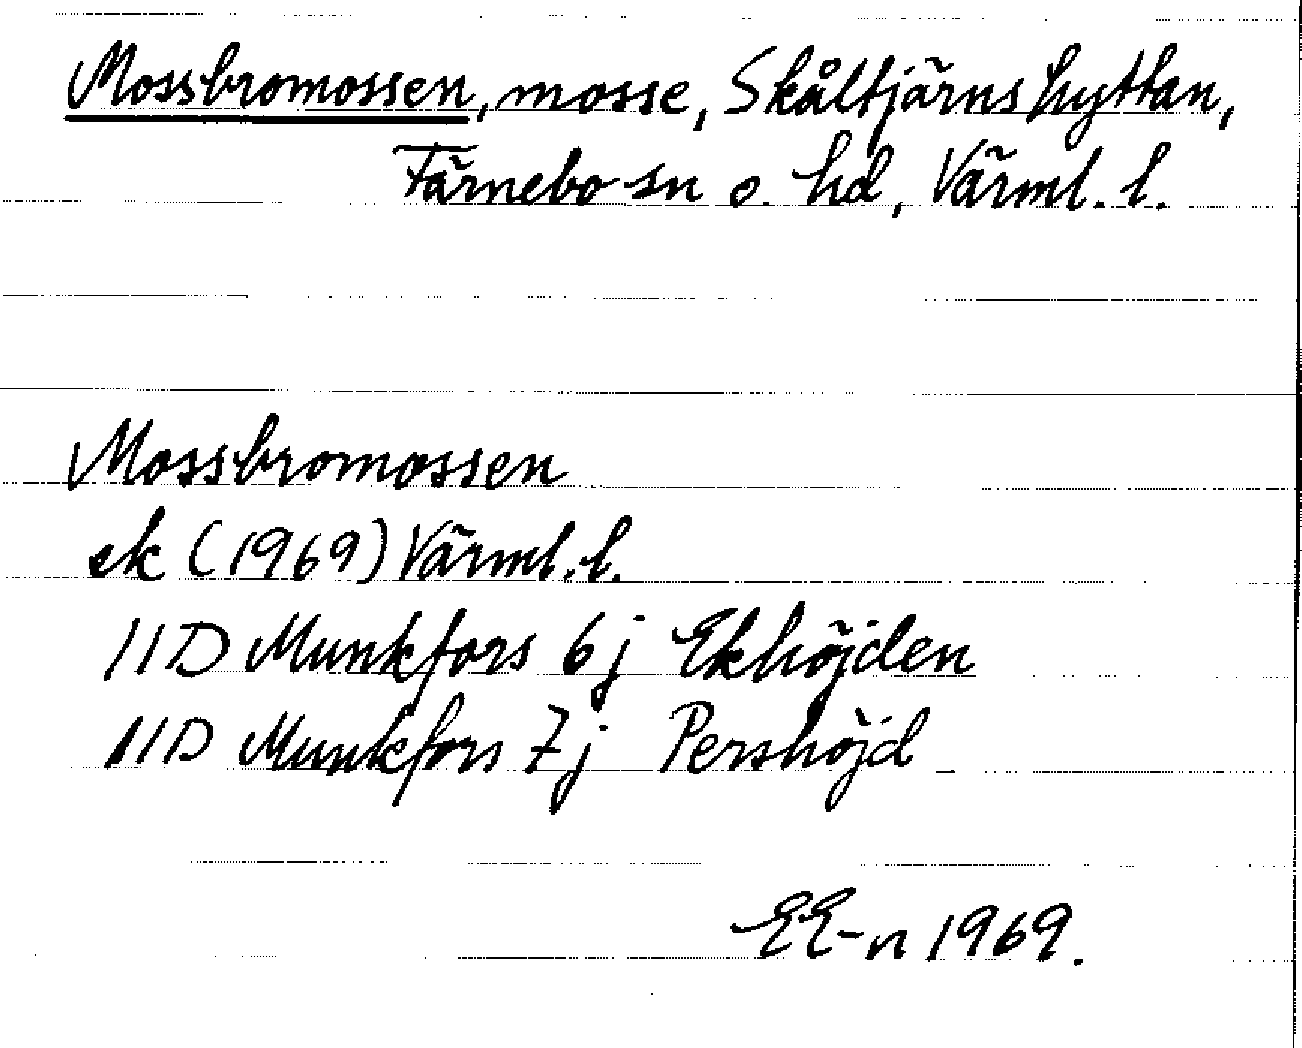 Mossbromossen, mosse, Skåltjärnshyttan,
Färnebo sn o. hd, Värml. l.
Mossbromossen
ek (1969) Värml. l.
11D Munkfors 6j Ekhöjden
11D Munkfors 7j Pershöjd
EE-n 1969.